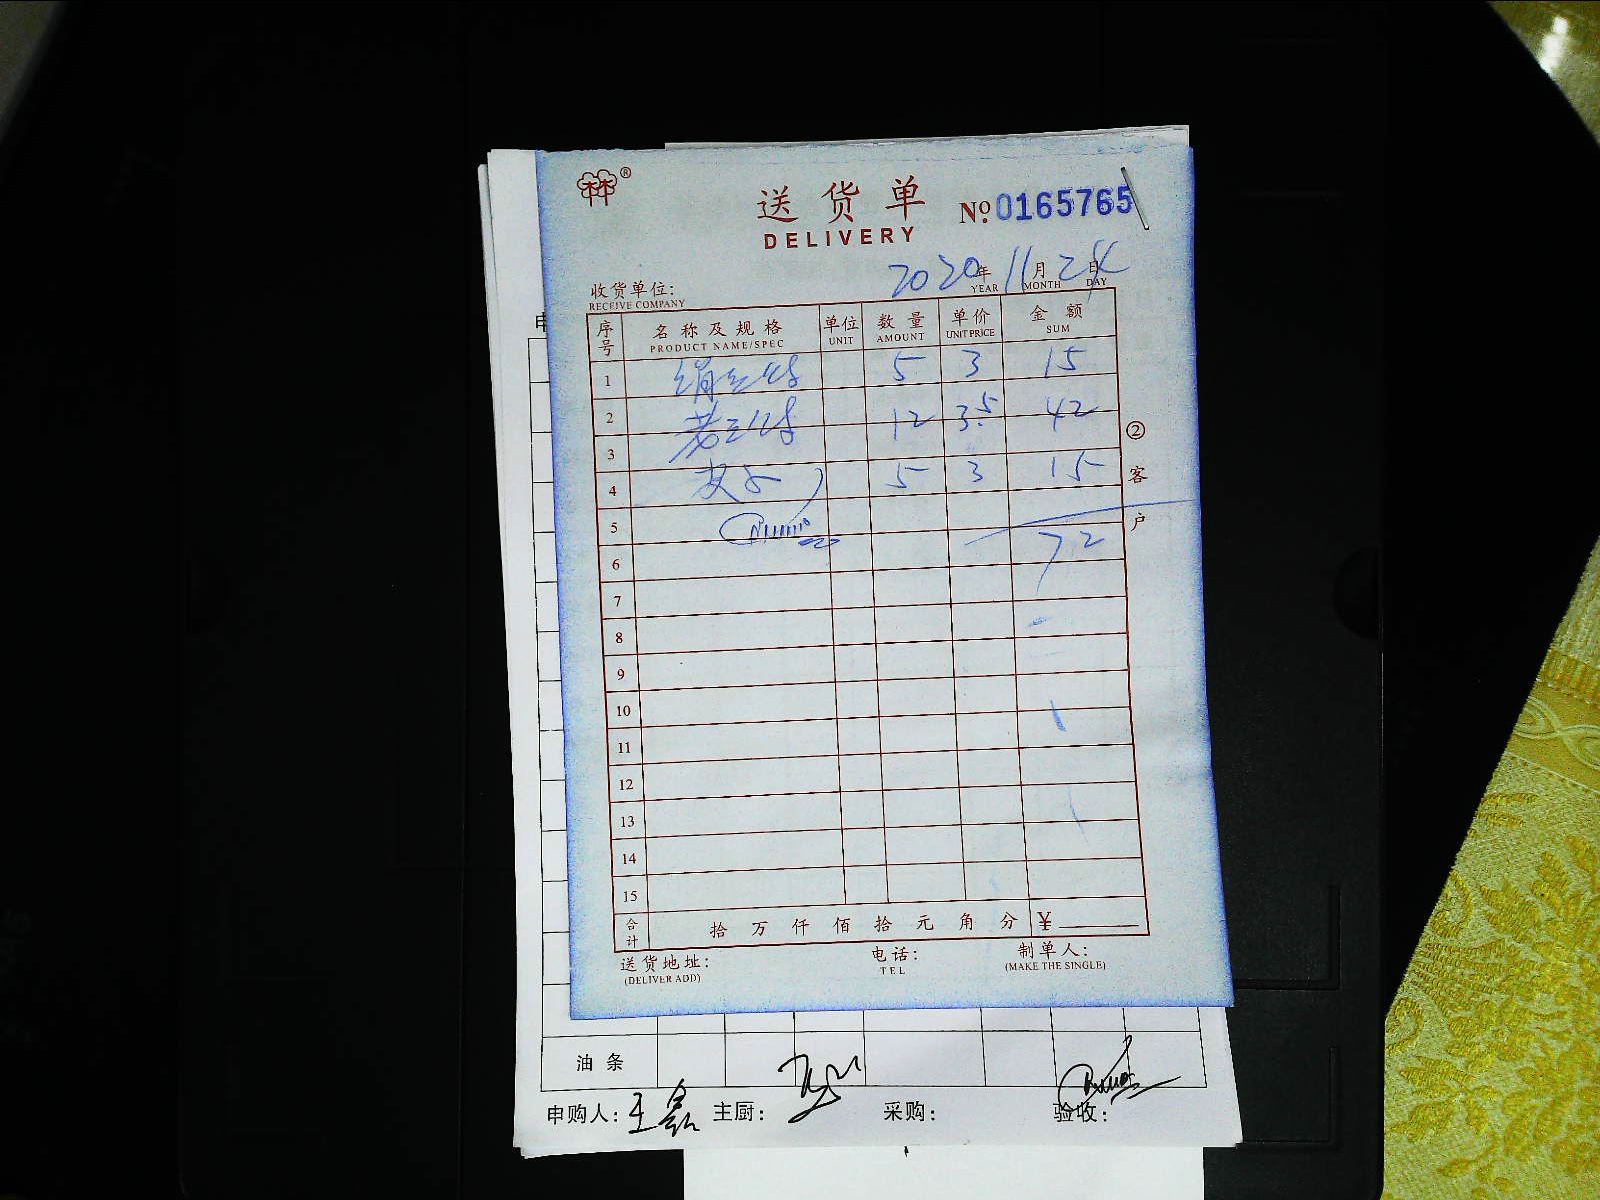 林®
送货单
DELIVERY
№ 0165765
2020年 11月 24日
YEAR MONTH DAY
收货单位:
RECEIVE COMPANY
序号 名称及规格 单位 数量 单价 金额
PRODUCT NAME/SPEC UNIT AMOUNT UNIT PRICE SUM
1 5 3 15
2 12 3.5 42
3
4 5 3 15
5
72
6
7
8
9
10
11
12
13
14
15
合计 拾 万 仟 佰 拾 元 角 分 ¥
② 客户
送货地址: 电话: 制单人:
(DELIVER ADD) TEL (MAKE THE SINGLE)
油条
申购人: 王磊 主厨: 采购: 验收: